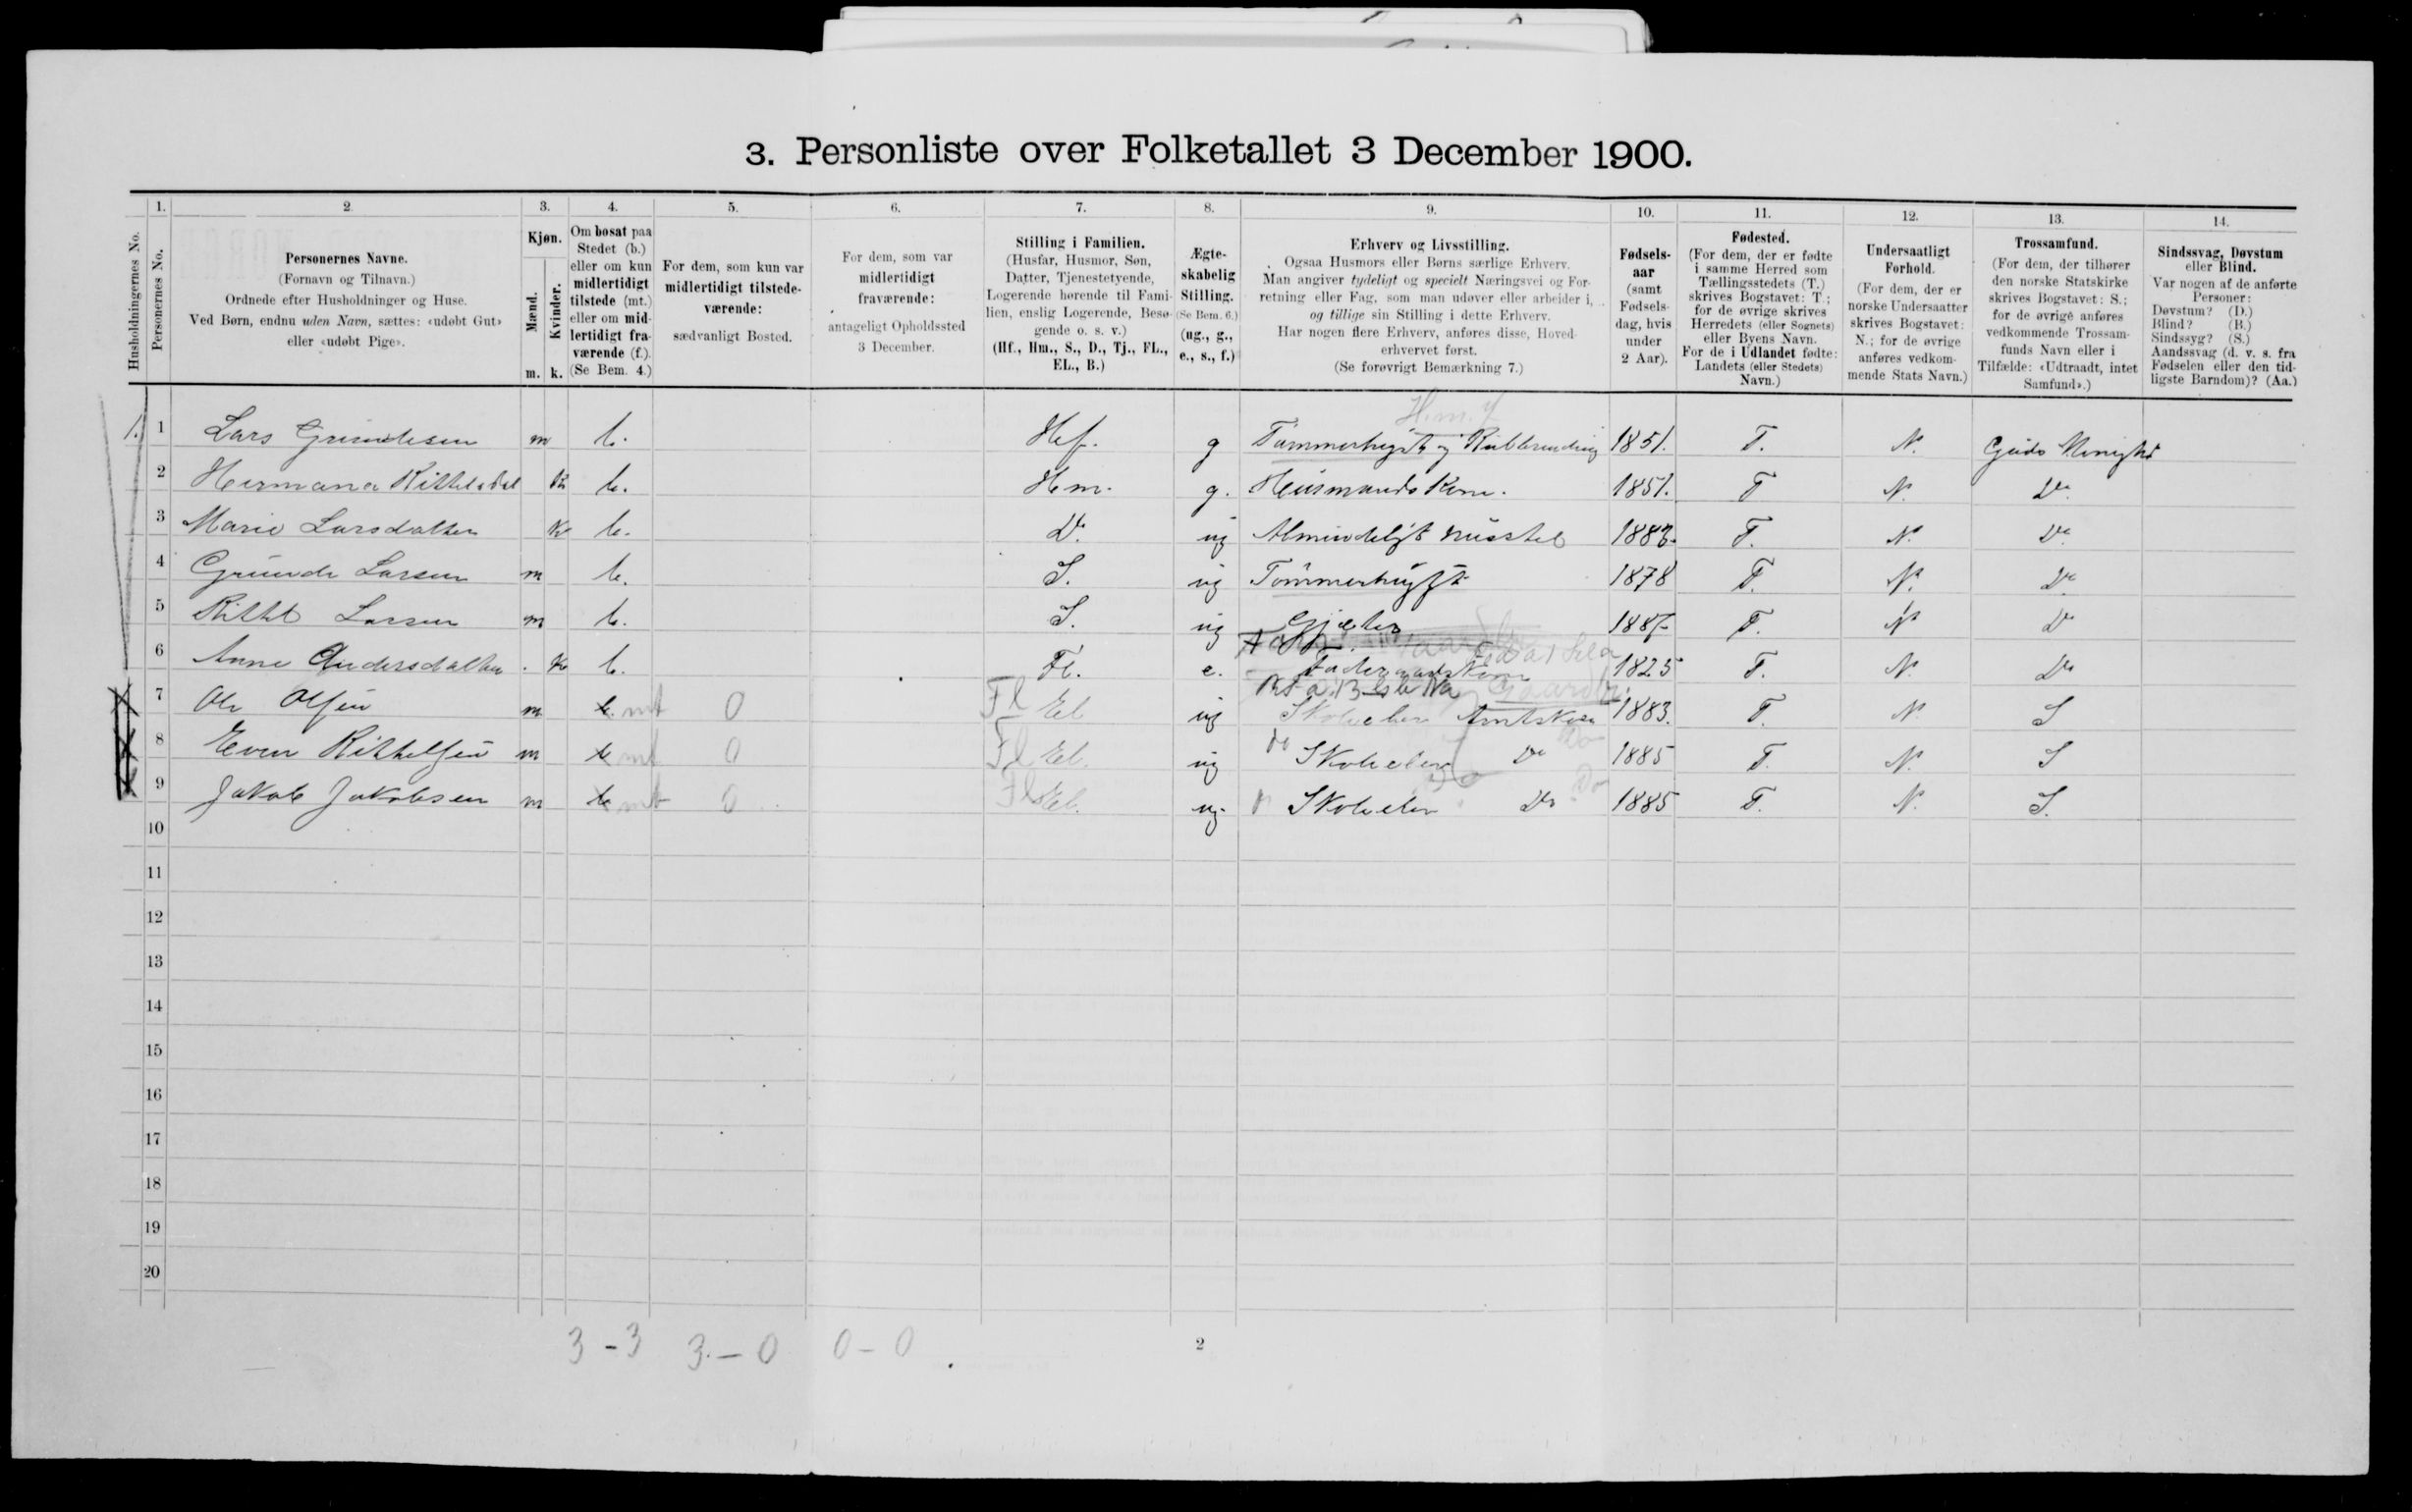 3. Personliste over Folketallet 3 December 1900.
Husholdningernes No.
1. Personernes No.
2. Personernes Navne. (Fornavn og Tilnavn.) Ordnede efter Husholdninger og Huse. Ved Børn, endnu uden Navn, sættes: «udøbt Gut» eller «udøbt Pige».
3. Kjøn. Mænd. m. Kvinder. k.
4. Om bosat paa Stedet (b.) eller om kun midlertidigt tilstede (mt.) eller om midlertidigt fraværende (f.). (Se Bem. 4.)
5. For dem, som kun var midlertidigt tilstedeværende: sædvanligt Bosted.
6. For dem, som var midlertidigt fraværende: antageligt Opholdssted 3 December.
7. Stilling i Familien. (Husfar, Husmor, Søn, Datter, Tjenestetyende, Logerende hørende til Familien, enslig Logerende, Besøgende o. s. v.) (Hf., Hm., S., D., Tj., FL., EL., B.)
8. Ægteskabelig Stilling. (Se Bem. 6.) (ug., g., e., s., f.)
9. Erhverv og Livsstilling. Ogsaa Husmors eller Børns særlige Erhverv. Man angiver tydeligt og specielt Næringsvei og Forretning eller Fag, som man udøver eller arbeider i, og tillige sin Stilling i dette Erhverv. Har nogen flere Erhverv, anføres disse, Hovederhvervet først. (Se forøvrigt Bemærkning 7.)
10. Fødselsaar (samt Fødselsdag, hvis under 2 Aar).
11. Fødested. (For dem, der er fødte i samme Herred som Tællingsstedets (T.) skrives Bogstavet: T.; for de øvrige skrives Herredets (eller Sognets) eller Byens Navn. For de i Udlandet fødte: Landets (eller Stedets) Navn.)
12. Undersaatligt Forhold. (For dem, der er norske Undersaatter skrives Bogstavet: N.; for de øvrige anføres vedkommende Stats Navn.)
13. Trossamfund. (For dem, der tilhører den norske Statskirke skrives Bogstavet: S.; for de øvrige anføres vedkommende Trossamfunds Navn eller i Tilfælde: «Udtraadt, intet Samfund».)
14. Sindssvag, Døvstum eller Blind. Var nogen af de anførte Personer: Døvstum? (D.) Blind? (B.) Sindssyg? (S.) Aandssvag (d. v. s. fra Fødselen eller den tidligste Barndom)? (Aa.)
H.m.
1. 1 Lars Grundesen m b. Hf. g Tømmerhugst og 1851. T. N. Guds Menighd
2 Hermana Kittelsdat k b. Hm. g. Husmands Kone. 1851. T N. Do
3 Marie Larsdatter k b. D. ug Almindeligt Husstel 1883. T. N. Do
4 Grunde Larsen m b. S. ug Tømmerhugst 1878 T. N. Do
5 Kittel Larsen m b. S. ug Gjæter 1887 T. N Do
6 Anne Andersdatter k b. Fl. e. Føderaadskone 1825 T. N. Do
7 Ole Olsen m b. mt 0 Fl El ug Skoleelev Amtskole 1883. T. N. S
8 Even Kittelsen m b mt 0 Fl El. ug do Skoleelev Do Do 1885 T. N. S
9 Jakob Jakobsen m b mt 0 Fl El. ug. Skoleelev Do Do 1885 T. N. S.
10
11
12
13
14
15
16
17
18
19
20
3 - 3 3. - 0 0 - 0
2